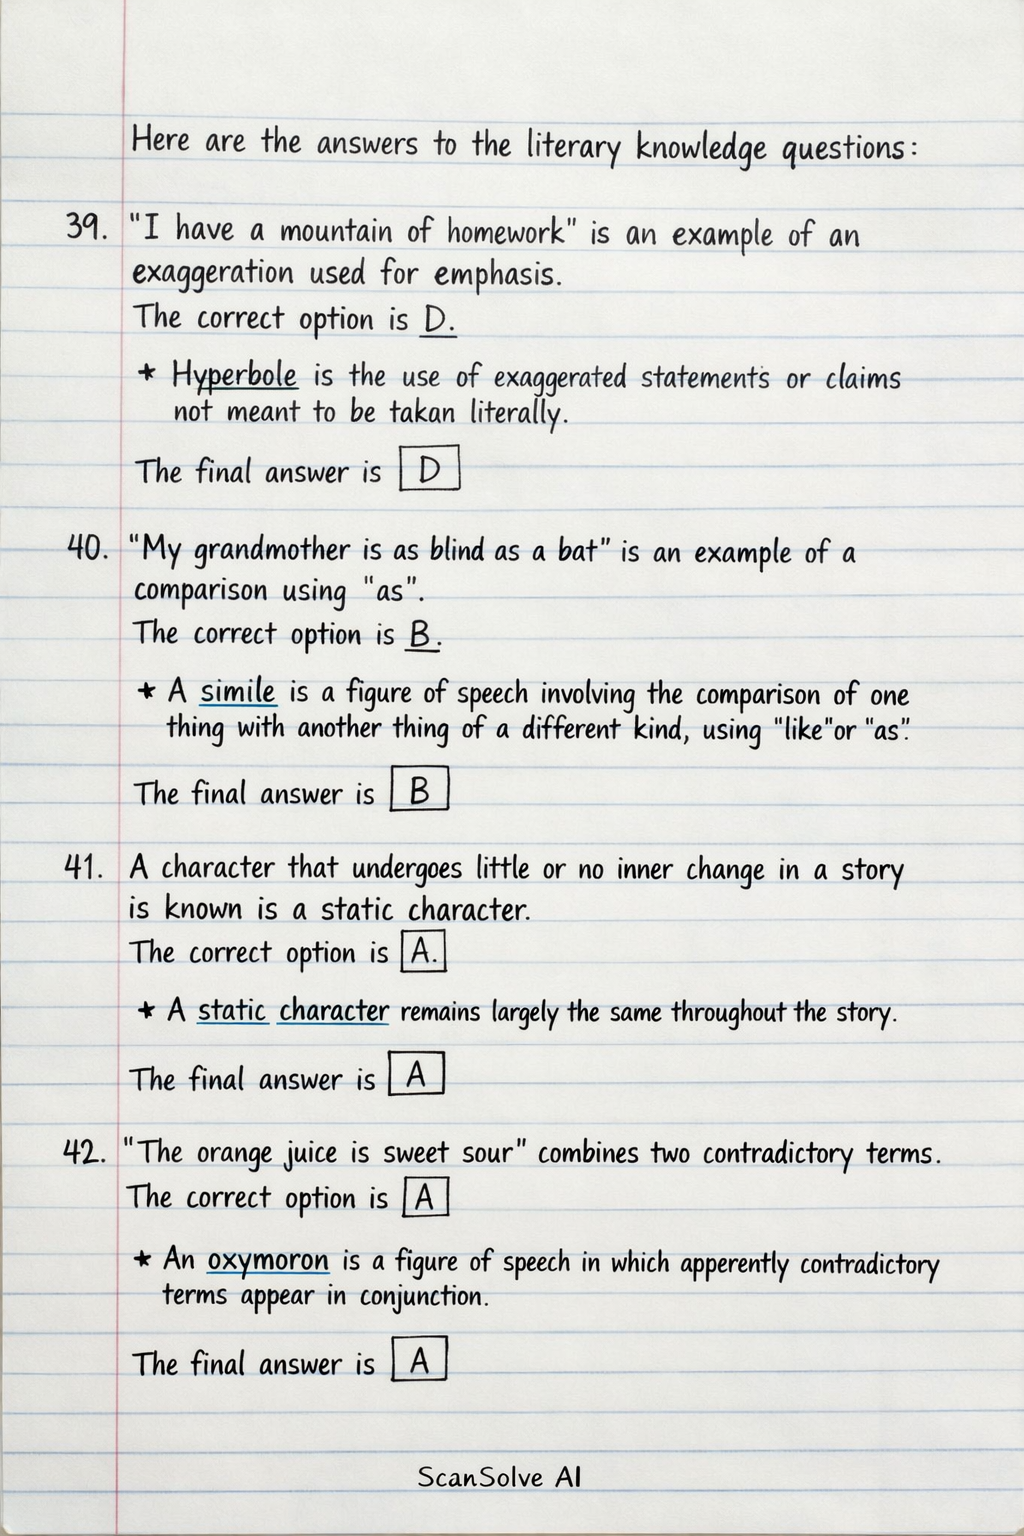 Here are the answers to the literary knowledge questions:
39. "I have a mountain of homework" is an example of an
exaggeration used for emphasis.
The correct option is D.
★ Hyperbole is the use of exaggerated statements or claims
not meant to be takan literally.
The final answer is D
40. "My grandmother is as blind as a bat" is an example of a
comparison using "as".
The correct option is B.
★ A simile is a figure of speech involving the comparison of one
thing with another thing of a different kind, using "like"or "as".
The final answer is B
41. A character that undergoes little or no inner change in a story
is known is a static character.
The correct option is A.
★ A static character remains largely the same throughout the story.
The final answer is A
42. "The orange juice is sweet sour" combines two contradictory terms.
The correct option is A
★ An oxymoron is a figure of speech in which apperently contradictory
terms appear in conjunction.
The final answer is A
ScanSolve AI